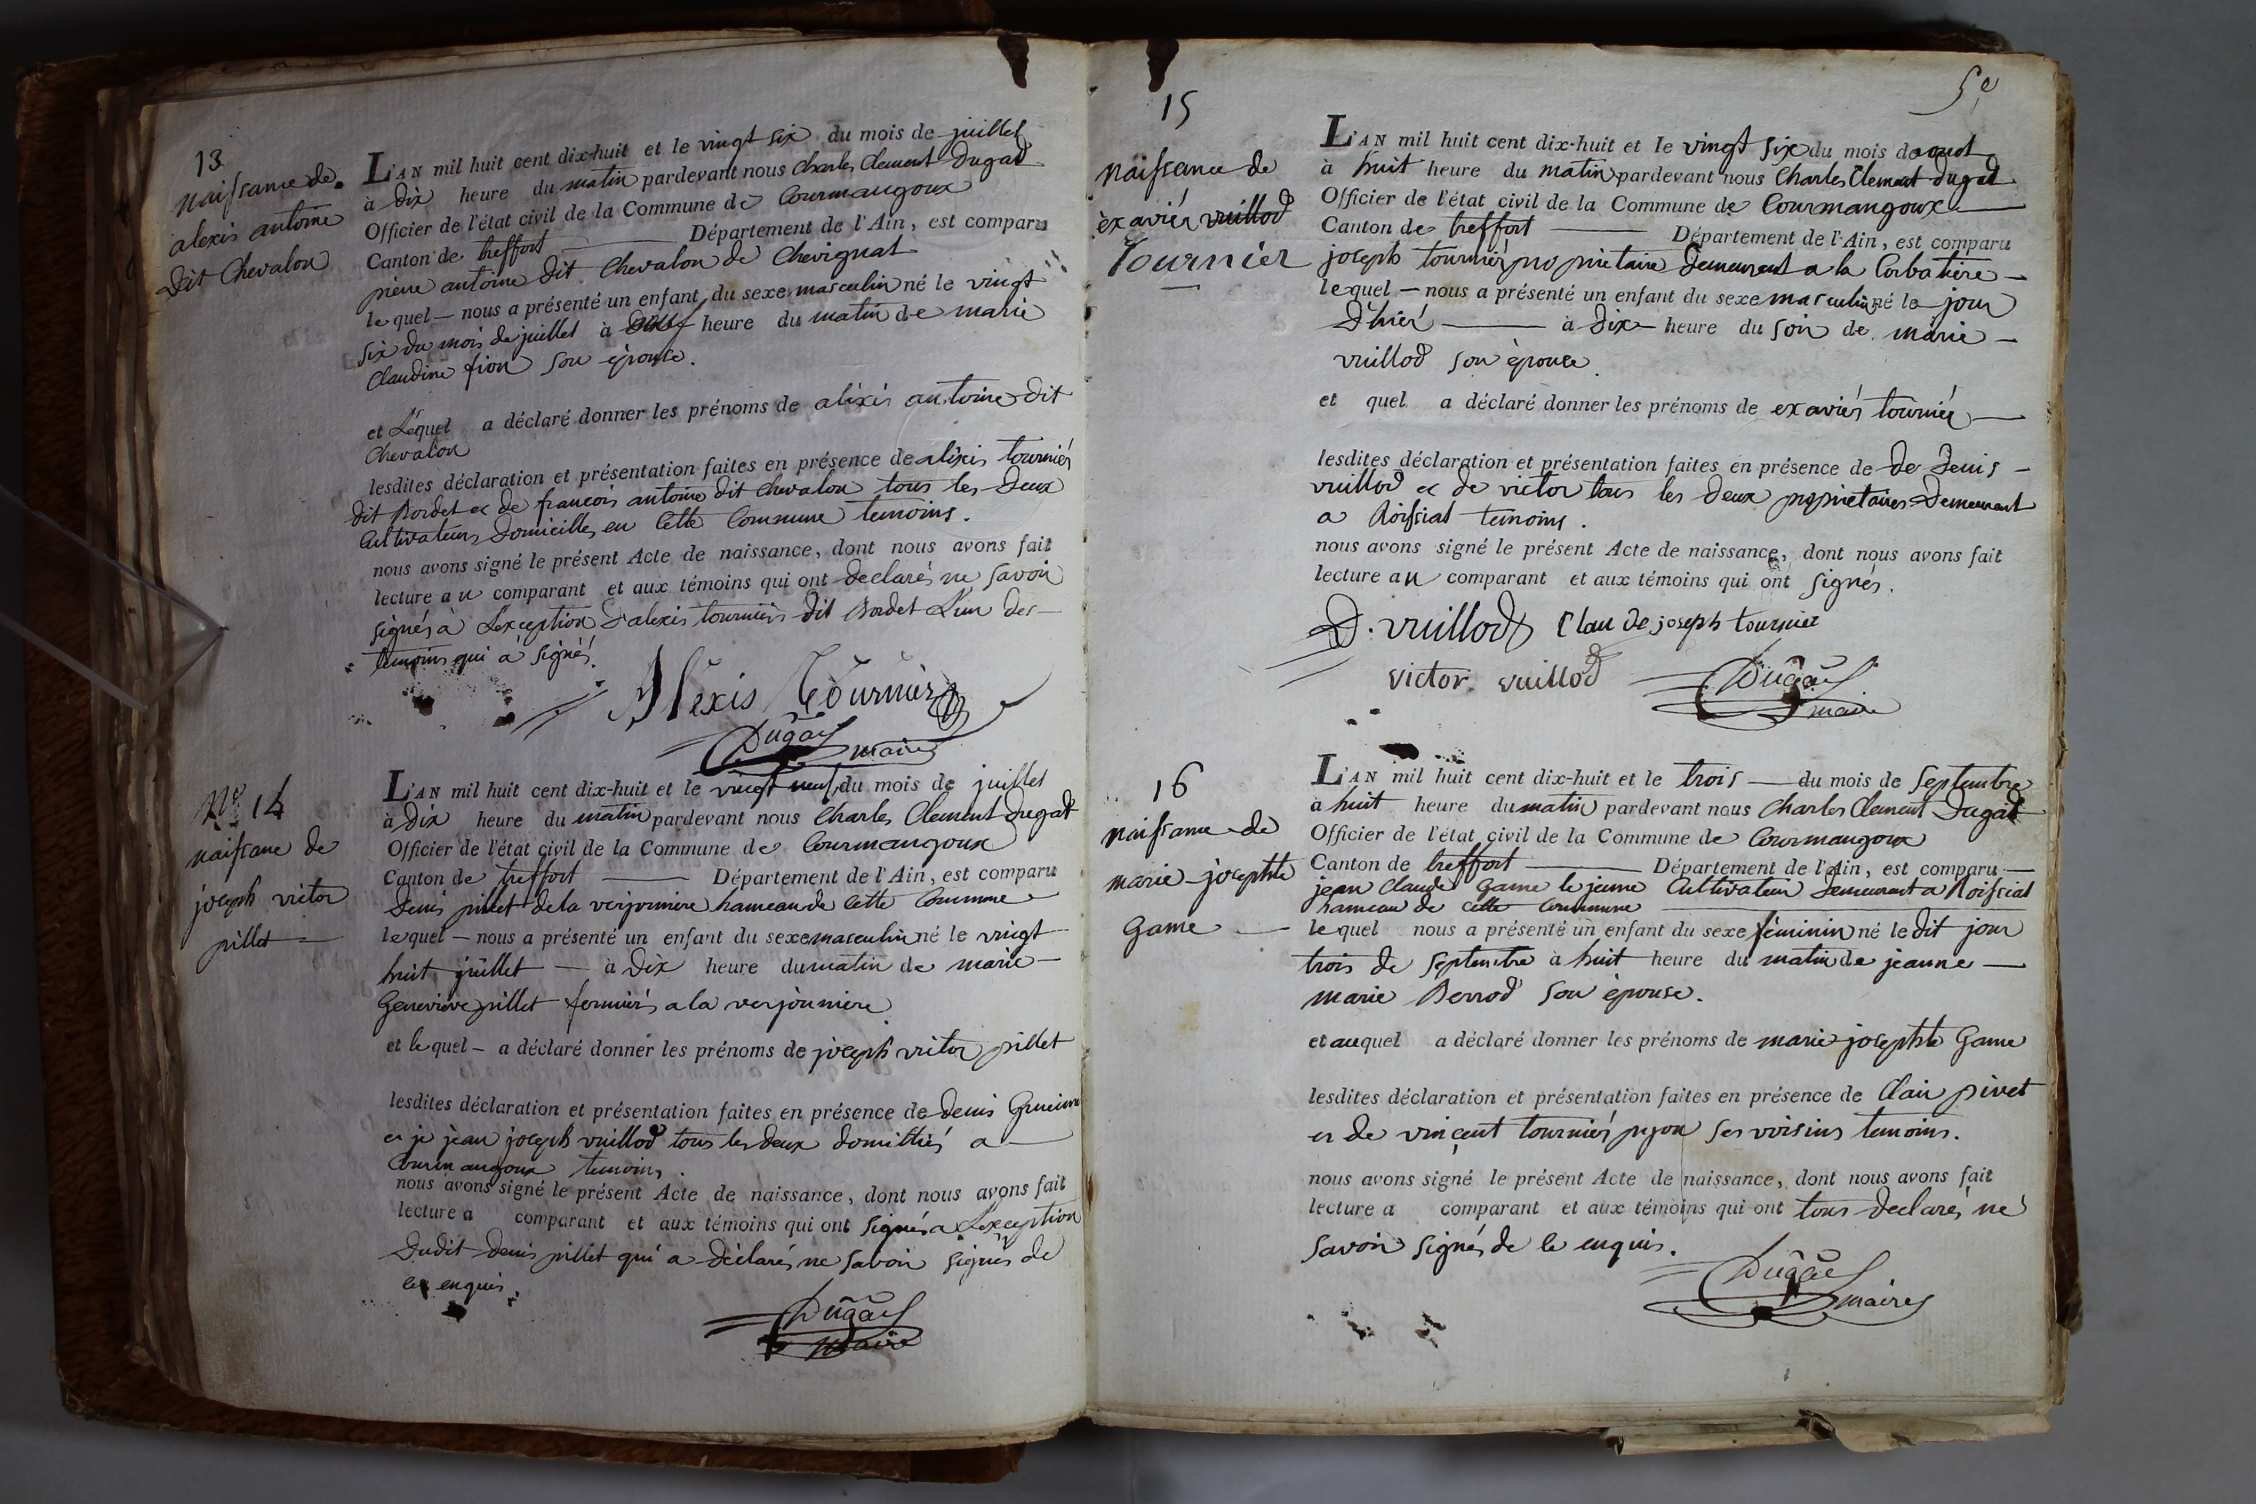 13
naissance de
alexis antoine
dit Chevalon
L'AN mil huit cent dix-huit et le vingt six du mois de juillet
à dix heure du matin pardevant nous Charles Clement Dugad
Officier de l'état civil de la Commune de Courmangoux
Canton de treffort Département de l'Ain, est comparu
pierre antoine dit Chevalon de Chevignat
lequel nous a présenté un enfant du sexe masculin né le vingt
six du mois de juillet à heure du matin de marie
Claudine fion son épouse.
et Léquel a déclaré donner les prénoms de aléxis antoine dit
Chevalon
lesdites déclaration et présentation faites en présence de aléxis tourniér
dit Bordet et de francois antoine dit chevalon tous les deux
Cultivateurs domicilles en Cette Commune temoins.
nous avons signé le présent Acte de naissance, dont nous avons fait
lecture au comparant et aux témoins qui ont declarés ne savoir
signés à Lexception d'alexis tourniér dit Bordet L'un des
temoins qui a signés.
Alexis Tournier
Dugad
maire
No 14
naissance de
joseph victor
pillet
L'AN mil huit cent dix-huit et le vingt neuf du mois de juillet
à Dix heure du matin pardevant nous Charles Clement Dugad
Officier de l'état civil de la Commune de Courmangoux
Canton de treffort Département de l'Ain, est comparu
Denis pillet de la verjonniere hameau de cette Commune
lequel nous a présenté un enfant du sexe masculin né le vingt
huit juillet à Dix heure du matin de marie
Geneviéve pillet fermiérs a la verjonniere
et lequel a déclaré donner les prénoms de joseph victor pillet
lesdites déclaration et présentation faites en présence de denis
et je jean joseph vuillod tous les deux domilliés a
Courmangoux temoins.
nous avons signé le présent Acte de naissance, dont nous avons fait
lecture a comparant et aux témoins qui ont signés a L'exception
Dudit denis pillet qui a déclarés ne savoir signés de
ce enquis.
Dugad
maire
5e
15
Naissance de
èxaviér vuillod
Tourniér
L'AN mil huit cent dix-huit et le vingt six du mois daoust
à huit heure du matin pardevant nous Charles Clement dugad
Officier de l'état civil de la Commune de Courmangoux
Canton de treffort Département de l'Ain, est comparu
joseph tourniér propriétaire demeurent a la Corbatiére
lequel nous a présenté un enfant du sexe masculin né le jour
d'hiér à dix heure du soir de marie
vuillod son épouse.
et quel a déclaré donner les prénoms de exaviér tourniér
lesdites déclaration et présentation faites en présence de de Denis
vuillod et de victor tous les deux propriétaires demeurant
a Roissiat temoins.
nous avons signé le présent Acte de naissance, dont nous avons fait
lecture au comparant et aux témoins qui ont signés.
D. vuillod Claude joseph tournier
victor vuillod
Dugad
maire
16
naissance de
marie josephte
Game
L'AN mil huit cent dix-huit et le trois du mois de septembre
à huit heure du matin pardevant nous Charles Clement Dugad
Officier de l'état civil de la Commune de Courmangoux
Canton de treffort Département de l'Ain, est comparu
jean Claude Game le jeune Cultivateur demeurant a Roissiat
hameau de cette Commune
lequel nous a présenté un enfant du sexe féminin né ledit jour
trois de septembre à huit heure du matin de jeanne
marie Berrod son épouse.
et auquel a déclaré donner les prénoms de marie josephte Game
lesdites déclaration et présentation faites en présence de Clair pivet
et de vincent tourniér pyon ses voisins temoins.
nous avons signé le présent Acte de naissance, dont nous avons fait
lecture a comparant et aux témoins qui ont tous declarés ne
savoir signés de ce enquis.
Dugad
maire